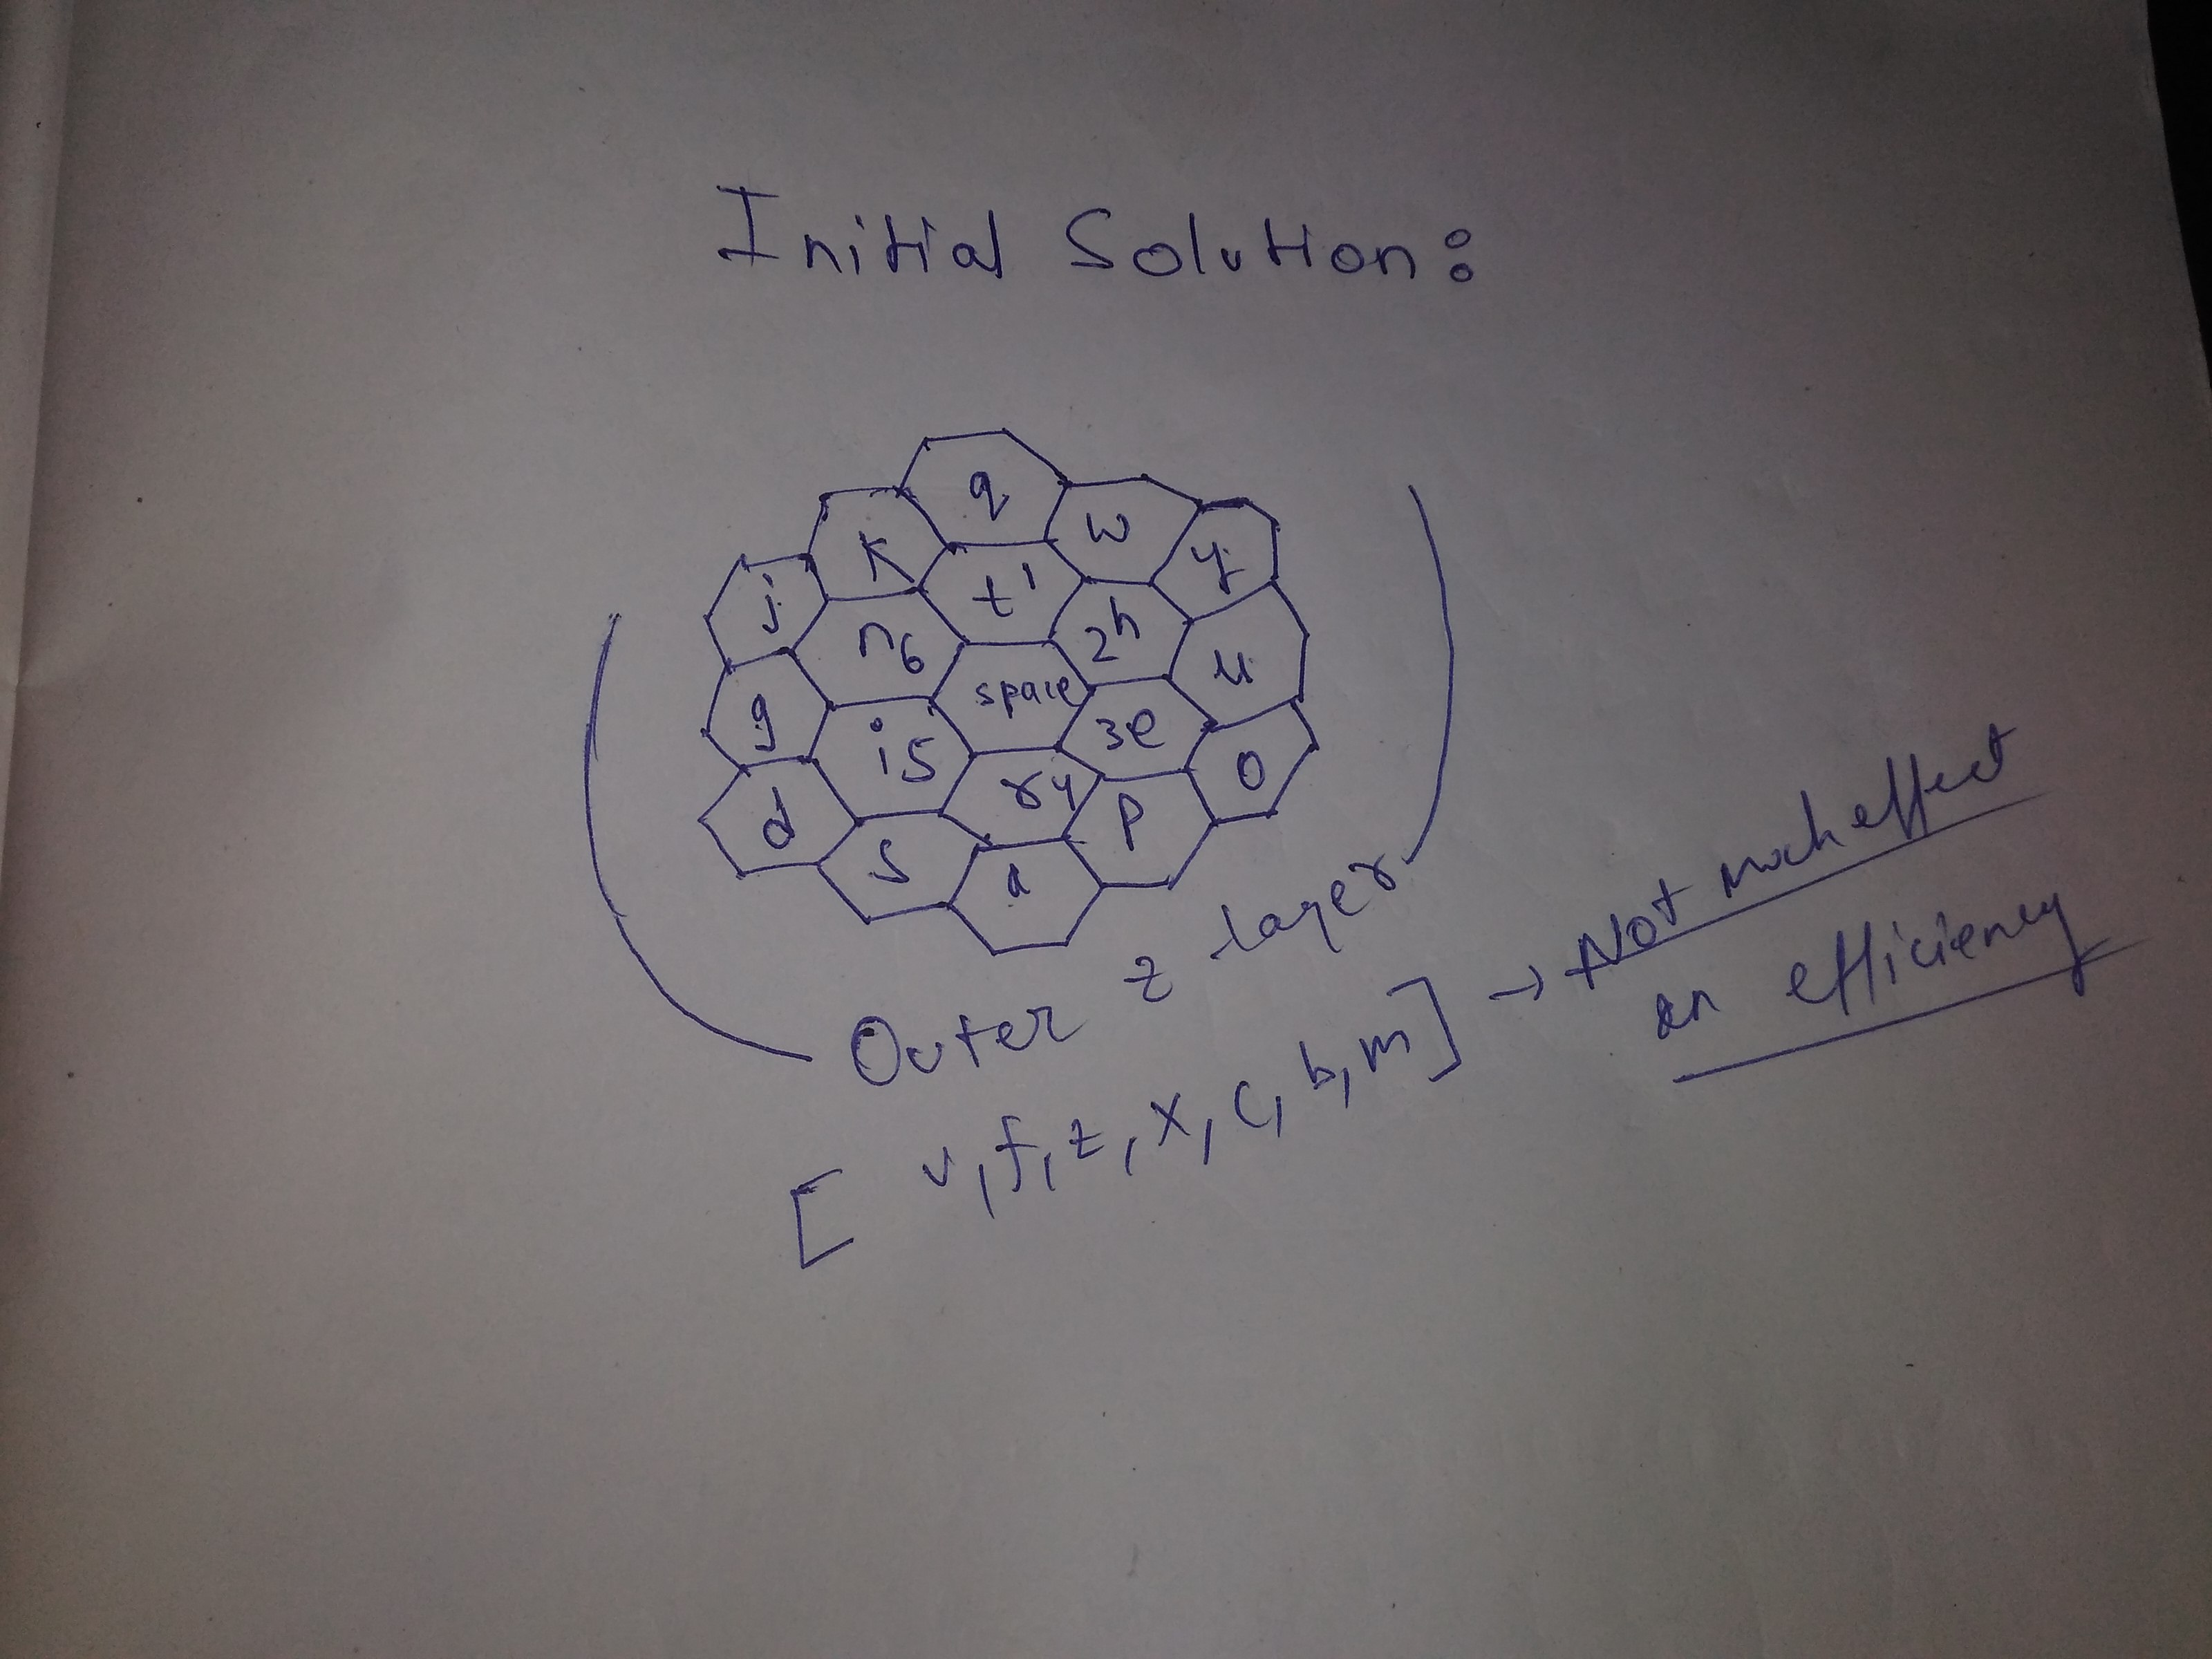 Initial Solution:
q
k w y
j t 1
n 6 2 h
space u
g 3 e
i 5 o
d r 4 p
s a
Outer 2 layer
[ v, f, z, x, c, b, m ] → Not much effect
on efficiency